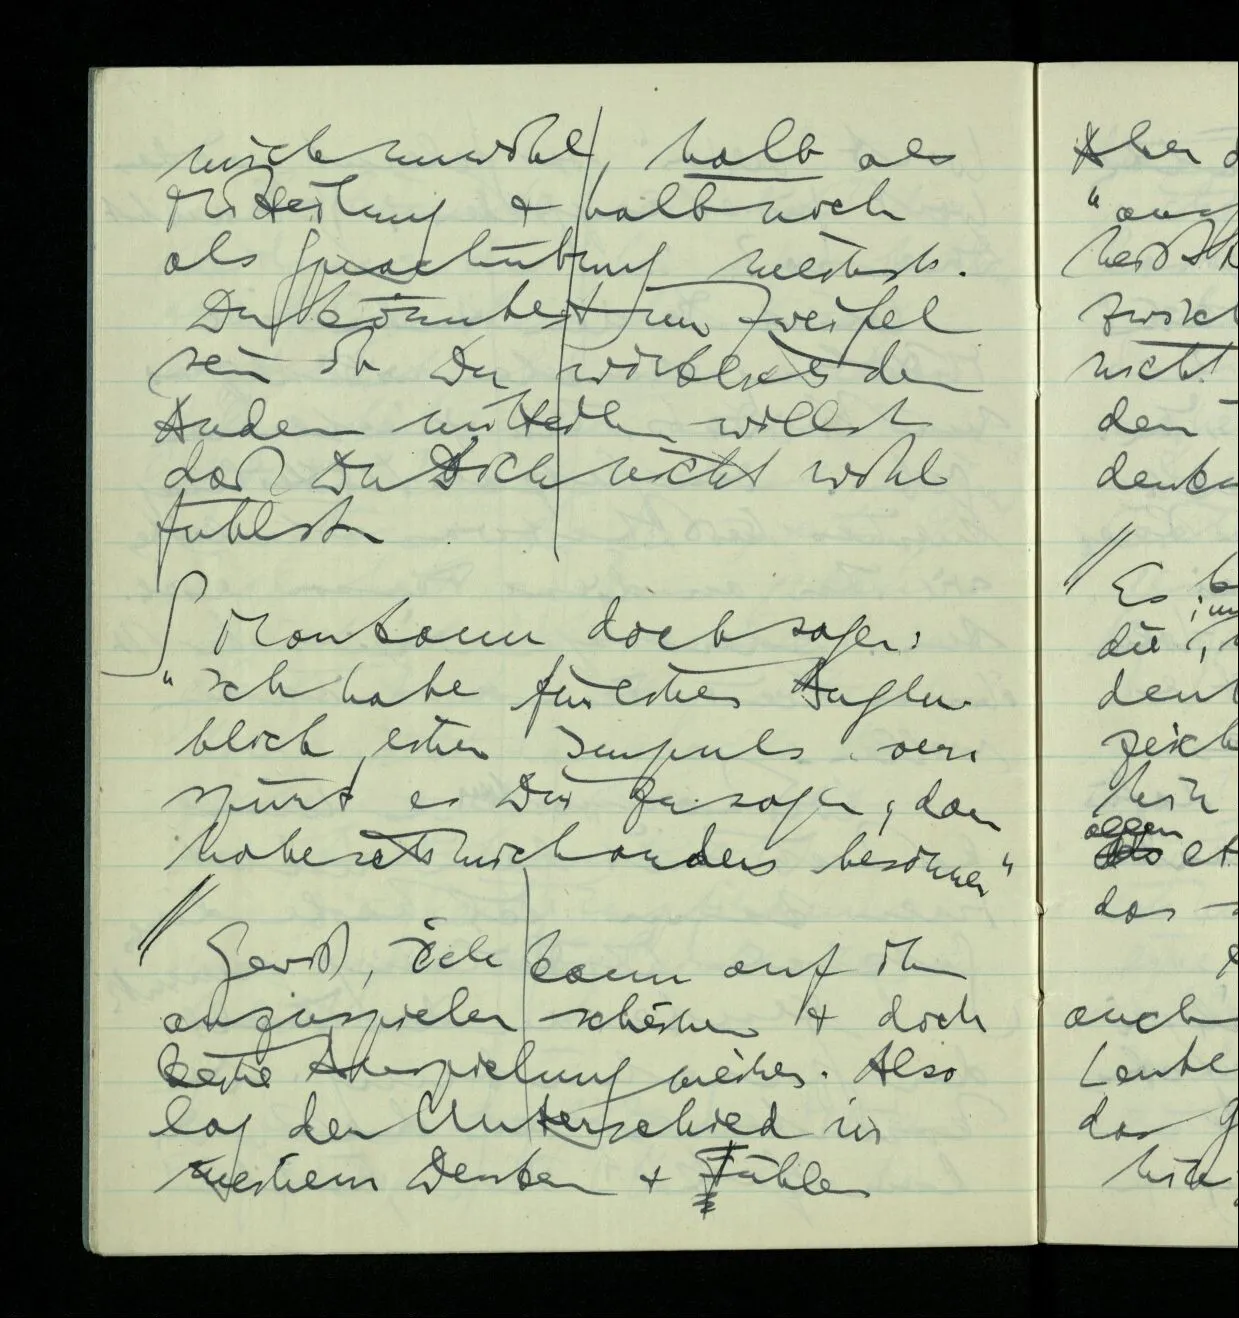 mich unwohl, halb als
Mitteilung + halb noch
als Sprachübung meinst.
Du könntest im Zweifel
sein ob Du wirklich dem
Andern mitteilen willst
daß Du Dich nicht wohl
fühlst
∫ Man kann doch sagen:
"Ich habe für einen Augen
blick einen Impuls ver
spürt es Dir zu sagen, dann
habe ich mich anders besonnen"
// Gewiß, ich kann auf ihn
anzuspielen scheinen + doch
keine Anspielung meinen. Also
lag der Unterschied in
meinem Denken + Fühlen
Aber
"
zwisch
nicht
den
denke
// Es
die
denk
zeich
hin
allen
das
auch
Leute
das